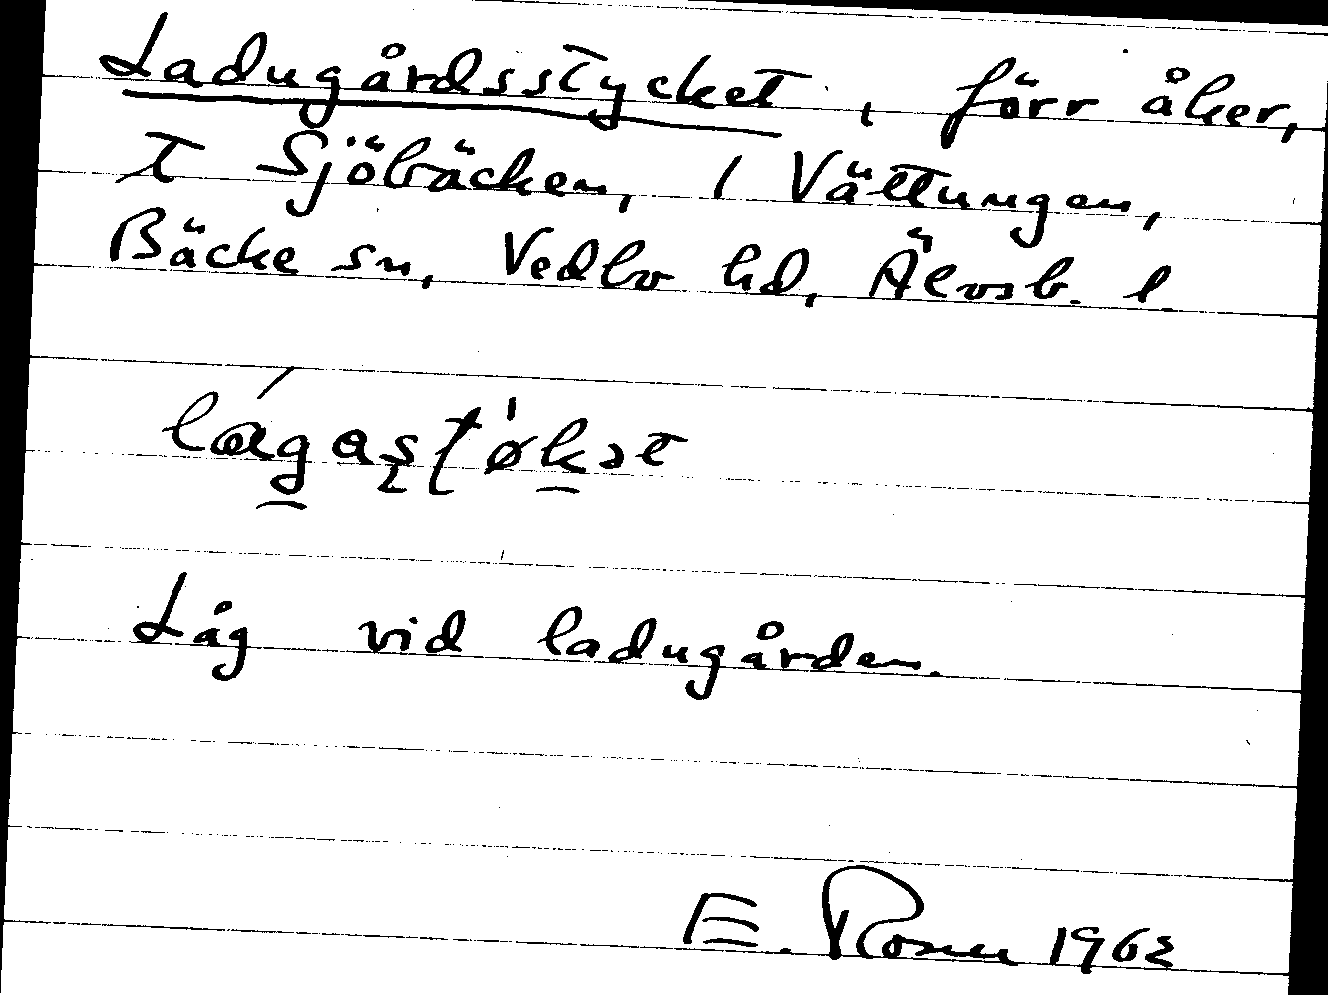 Ladugårdsstycket, förr åker,
t Sjöbäcken, 1 Vättungen,
Bäcke sn, Vedbo hd, Älvsb. l
Låg vid ladugården.
E. Rosen 1962